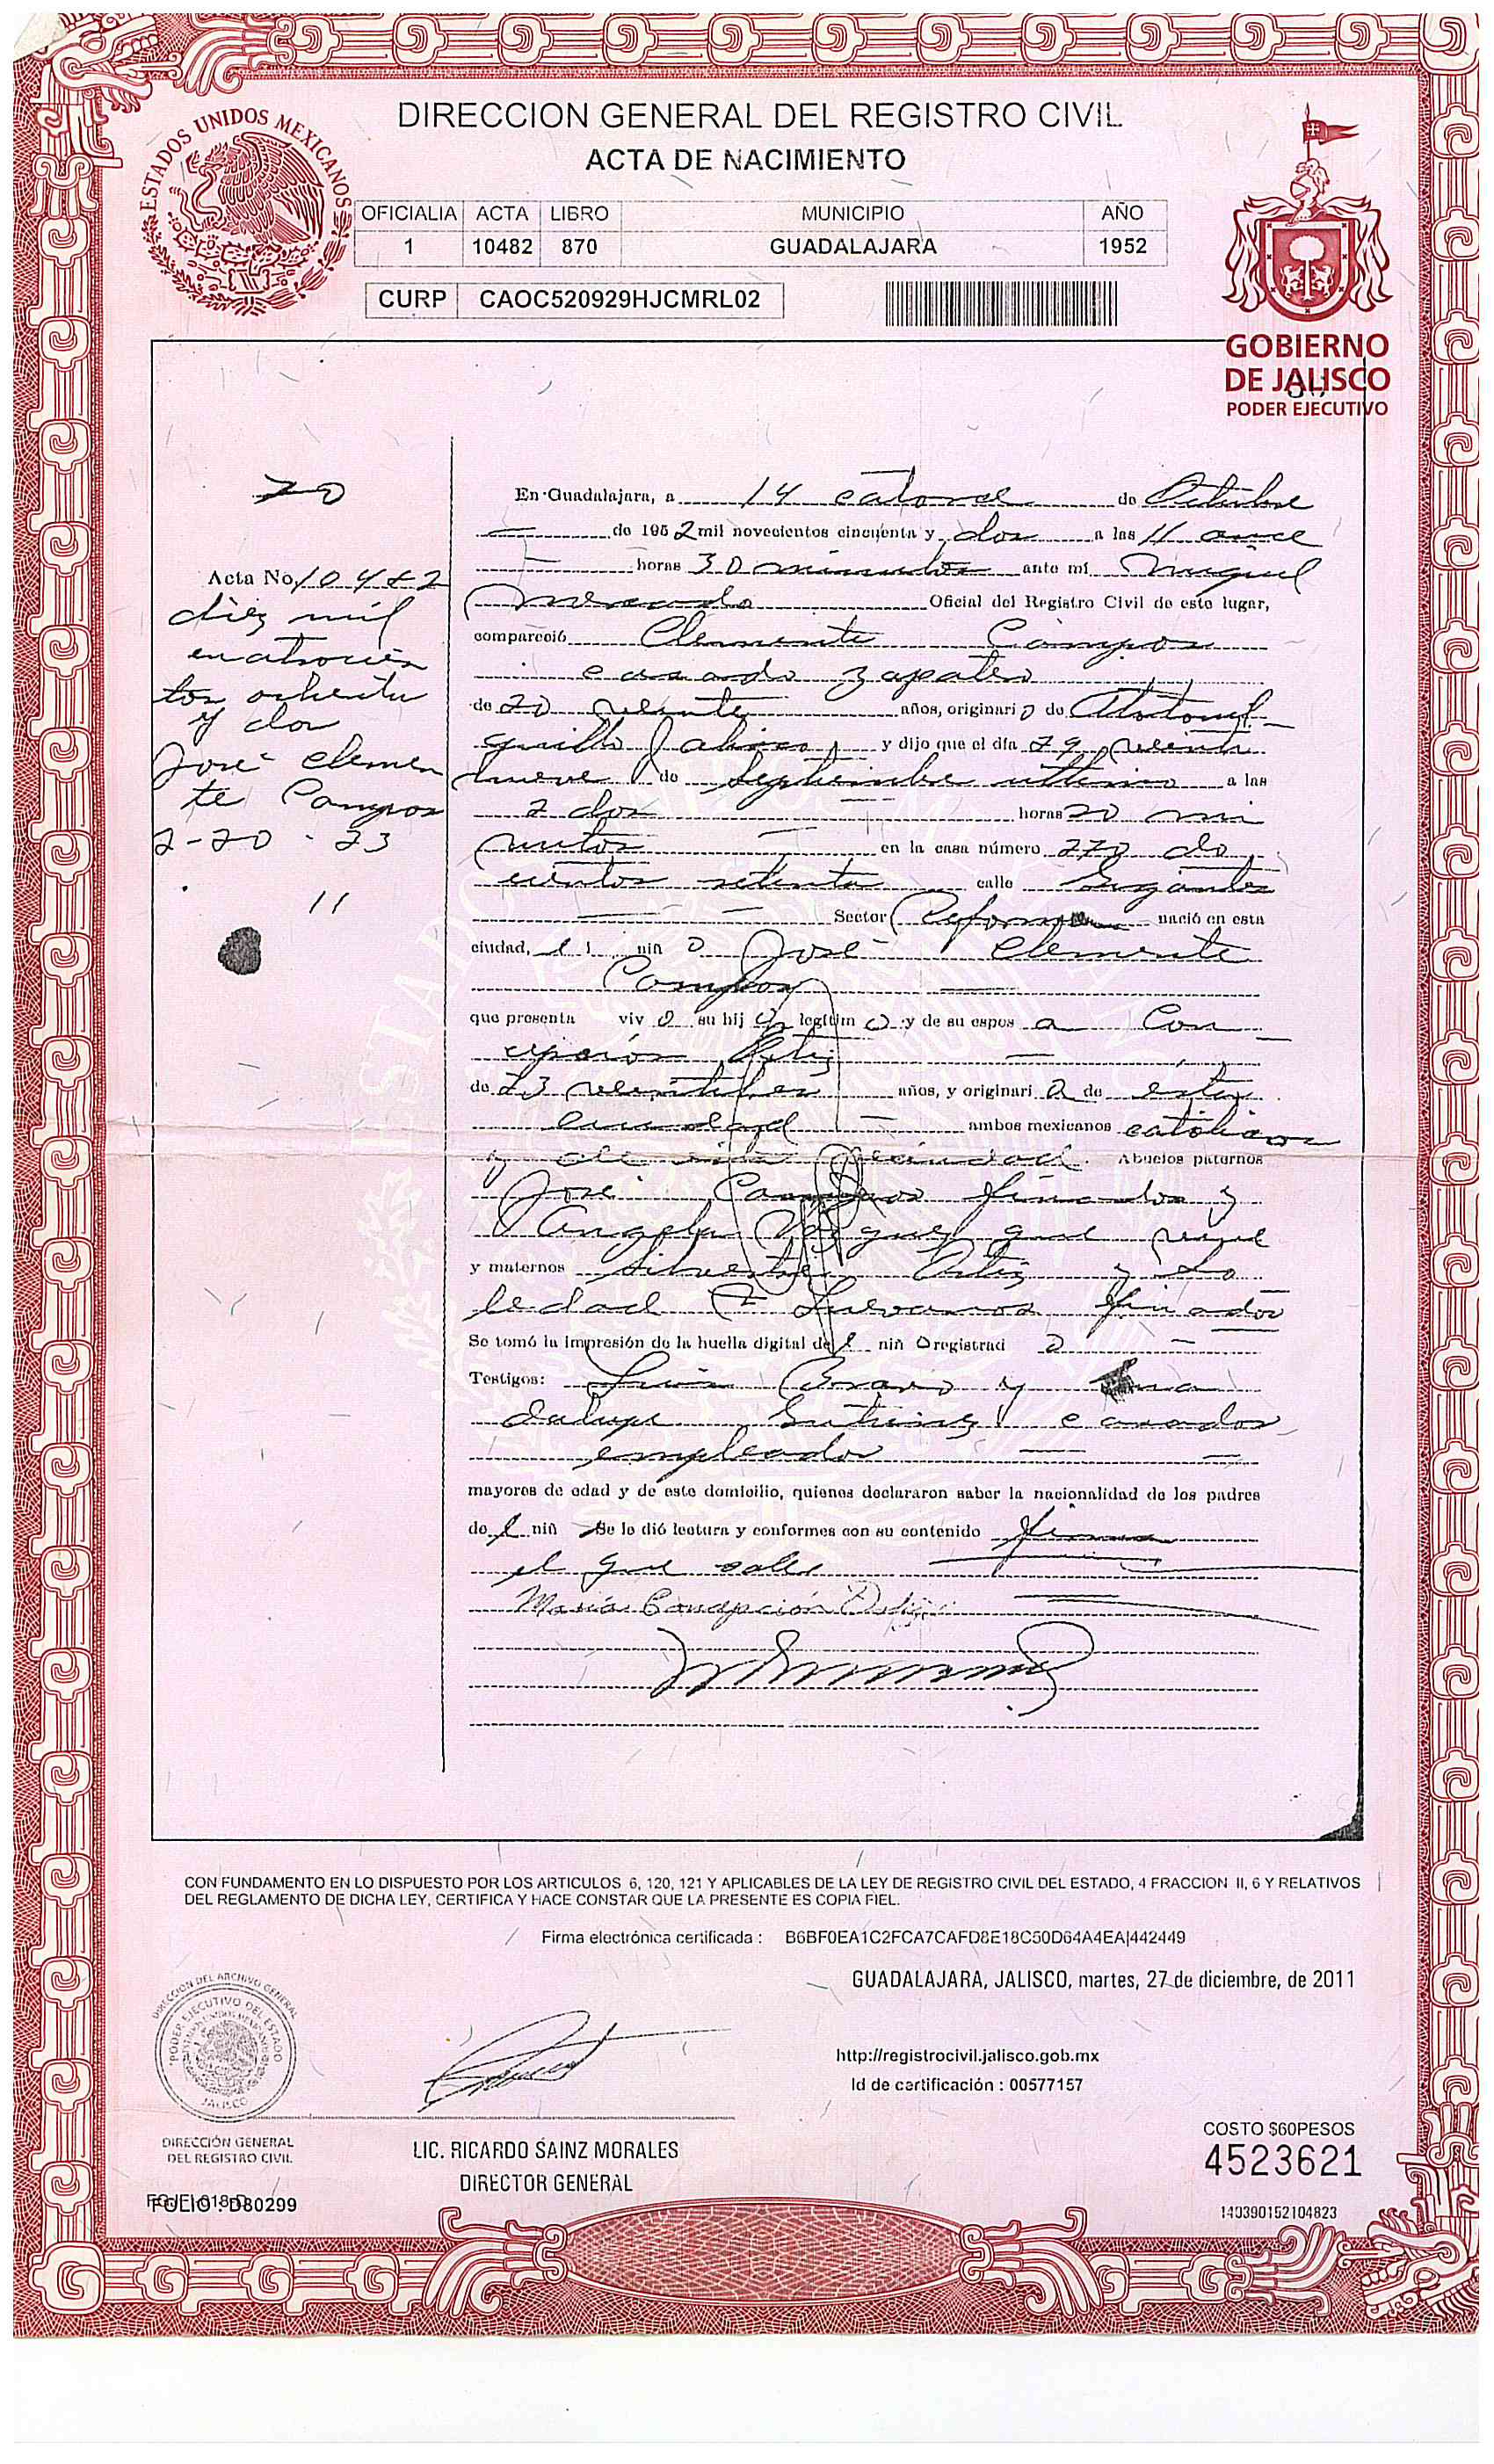 DIRECCION GENERAL DEL REGISTRO CIVIL
ACTA DE NACIMIENTO
ESTADOS UNIDOS MEXICANOS
OFICIALIA ACTA LIBRO MUNICIPIO AÑO
1 10482 870 GUADALAJARA 1952
CURP CAOC520929HJCMRL02
GOBIERNO
DE JALISCO
PODER EJECUTIVO
20
Acta No. 10482
diez mil
cuatrocien
tos ochenta
y dos
José Clemen
te Campos
2-20-23
11
En Guadalajara, a 14 catorce de Octubre
de 1952 mil novecientos cincuenta y dos a las 11 once
horas 30 minutos ante mí Miguel
Mercado Oficial del Registro Civil de este lugar,
compareció Clemente Campos
casado zapatero
de 20 veinte años, originario de Atotonil
quillo Jalisco, y dijo que el día 29 veinti
nueve de Septiembre último a las
2 dos horas 20 mi
nutos en la casa número 270 dos
cientos setenta calle
Sector Reforma nació en esta
ciudad, el niño José Clemente
Campos
que presenta vivo su hijo legítimo y de su esposa Con
cepción Ortiz
de 23 veintitres años, y originaria de esta
ciudad ambos mexicanos católicos
y de esta vecindad. Abuelos paternos
José Campos finados y
Angela que vive
y maternos Silvestre Ortiz y So
ledad Luevanos finados
Se tomó la impresión de la huella digital del niño registrado
Testigos: Luis Bravo y Gua
dalupe Gutiérrez casados
empleados
mayores de edad y de este domicilio, quienes declararon saber la nacionalidad de los padres
del niñ Se le dió lectura y conformes con su contenido firma
el que sabe
María Concepción Ortiz
CON FUNDAMENTO EN LO DISPUESTO POR LOS ARTICULOS 6, 120, 121 Y APLICABLES DE LA LEY DE REGISTRO CIVIL DEL ESTADO, 4 FRACCION II, 6 Y RELATIVOS
DEL REGLAMENTO DE DICHA LEY, CERTIFICA Y HACE CONSTAR QUE LA PRESENTE ES COPIA FIEL.
Firma electrónica certificada : B6BF0EA1C2FCA7CAFD8E18C50D64A4EA|442449
GUADALAJARA, JALISCO, martes, 27 de diciembre, de 2011
DIRECCION DEL ARCHIVO GENERAL
PODER EJECUTIVO DEL ESTADO
JALISCO
http://registrocivil.jalisco.gob.mx
Id de certificación : 00577157
DIRECCIÓN GENERAL
DEL REGISTRO CIVIL
LIC. RICARDO SAINZ MORALES
DIRECTOR GENERAL
COSTO $60PESOS
4523621
FOLIO : D80299
140390152104823